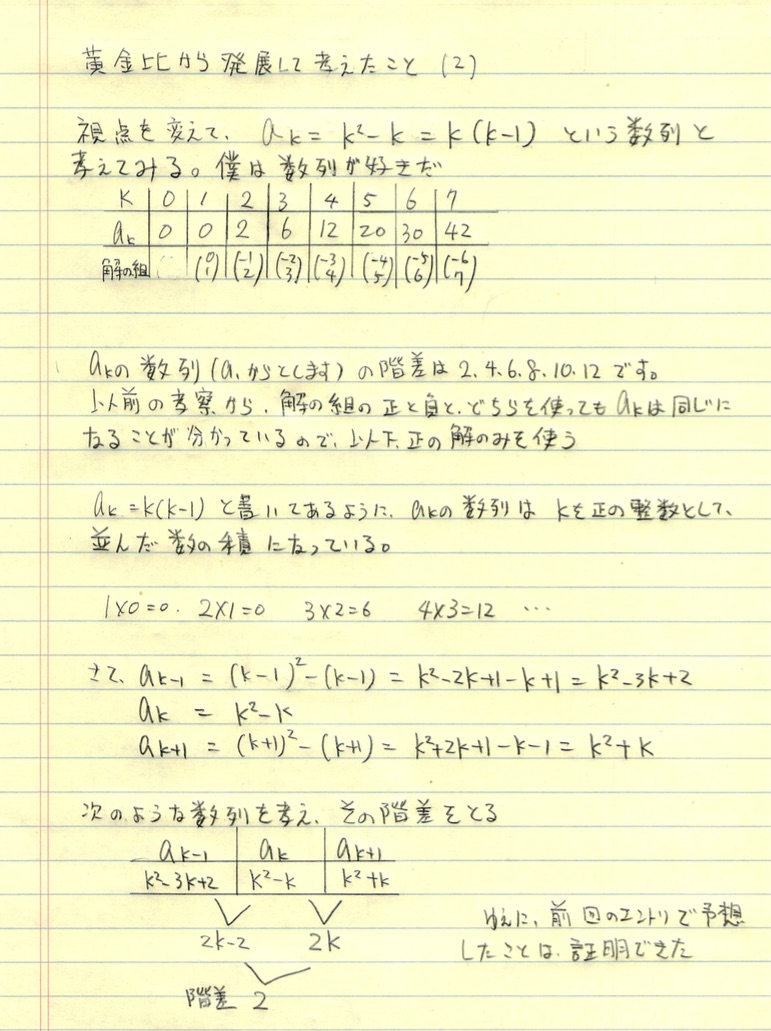 黄金比から発展して考えたこと (2)
視点を変えて、 ak = k²-k = k(k-1) という数列と
考えてみる。僕は数列が好きだ
K 0 1 2 3 4 5 6 7
ak 0 0 2 6 12 20 30 42
解の組 (0 1) (-1 2) (-2 3) (-3 4) (-4 5) (-5 6) (-6 7)
akの数列(a1からとします)の階差は2.4.6.8.10.12です。
以前の考察から、解の組の正と負と、どちらを使ってもakは同じに
なることが分かっているので、以下、正の解のみを使う
ak=k(k-1)と書いてあるように、akの数列はkを正の整数として、
並んだ数の積になっている。
1×0=0. 2×1=0 3×2=6 4×3=12 …
さて、 ak-1 = (k-1)²-(k-1) = k²-2k+1-k+1 = k²-3k+2
ak = k²-k
ak+1 = (k+1)²-(k+1) = k²+2k+1-k-1 = k²+k
次のような数列を考え、その階差をとる
ak-1 ak ak+1
k²-3k+2 k²-k k²+k
2k-2 2k
階差 2
ゆえに、前回のエントリで予想
したことは、証明できた